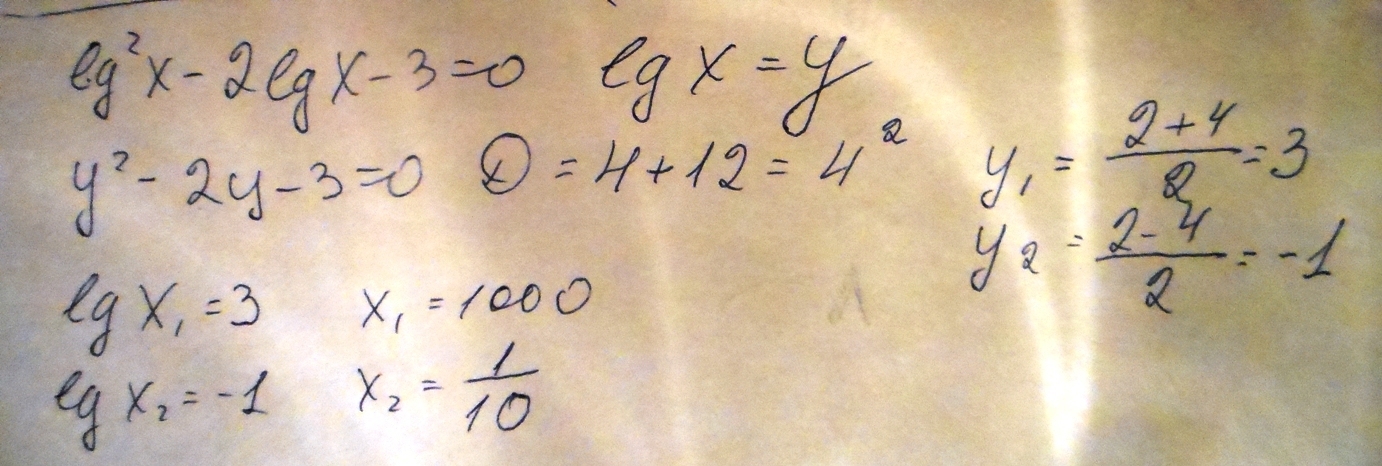 lg²x - 2lgx - 3 = 0   lg x = y
y² - 2y - 3 = 0   D = 4 + 12 = 4²   y₁ = (2+4)/2 = 3
y₂ = (2-4)/2 = -1
lg x₁ = 3   x₁ = 1000
lg x₂ = -1   x₂ = 1/10